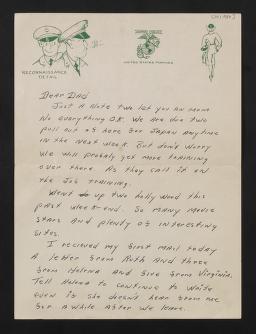 RECONNAISSANCE
DETAIL
UNITED STATES MARINES
Dear Dad
Just A Note two let you an mom
No everything O.K. We are due two
pull out of here for Japan Anytime
in the next week. But don't worry
we will probaly get more training
over there As they call it on
the Job training.
Went up two hollywood this
past week-end. So many movie
stars And plenty of interesting
sites.
I recieved my first mail today
A letter from Ruth And three
from Helena And five from Virginia.
Tell Helena to continue to write
even if she doesn't hear from me
for awhile After we leave.